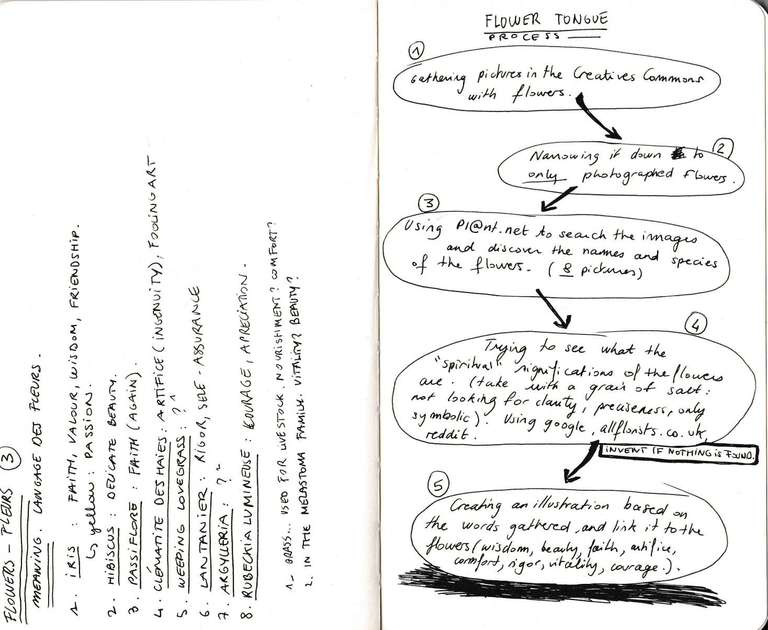 FLOWERS - FLEURS ③
MEANING. LANGAGE DES FLEURS.
1. IRIS : FAITH, VALOUR, WISDOM, FRIENDSHIP.
↳ yellow : PASSION.
2. HIBISCUS : DELICATE BEAUTY.
3. PASSIFLORE : FAITH (AGAIN).
4. CLÉMATITE DES HAIES : ARTIFICE (INGENUITY), FOOLING ART
5. WEEPING LOVEGRASS : ?¹
6. LANTANIER : RIGOR, SELF-ASSURANCE
7. ARGYLLERIA : ?²
8. RUBECKIA LUMINEUSE : COURAGE, APRECIATION.
1_ GRASS... USED FOR LIVESTOCK. NOURISHMENT? COMFORT?
2. IN THE MELASTOMA FAMILY. VITALITY? BEAUTY?
FLOWER TONGUE
PROCESS
①
Gathering pictures in the Creatives Commons
with flowers.
②
Narrowing it down to
only photographed flowers.
③
Using Pl@nt.net to search the images
and discover the names and species
of the flowers. (8 pictures)
④
Trying to see what the
"spiritual" significations of the flowers
are. (take with a grain of salt:
not looking for clarity, preciseness, only
symbolic). Using google, allflorists.co.uk,
reddit.
INVENT IF NOTHING IS FOUND.
⑤
Creating an illustration based on
the words gathered, and link it to the
flowers (wisdom, beauty, faith, artifice,
comfort, rigor, vitality, courage.).